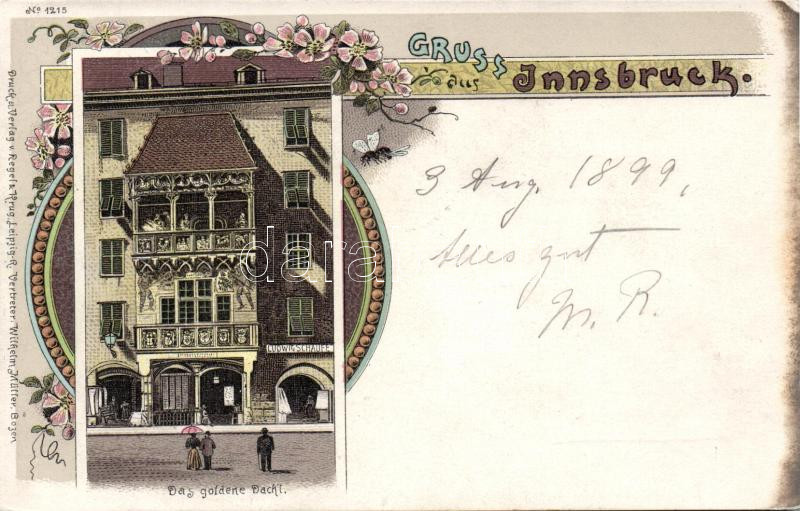 No 1215
GRUSS
aus Innsbruck.
3 Aug. 1899,
Alles gut
M. R.
LUDWIG SCHAUFE
Das goldene Dachl.
Druck u. Verlag v. Regel & Krug, Leipzig-R. Vertreter: Wilhelm Müller, Bozen
dara